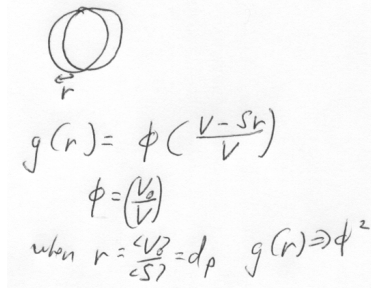 r
g(r) = φ ( (V - Sr) / V )
φ = ( V₀ / V )
when r = <V₀> / <S> = dₚ g(r) ⇒ φ²